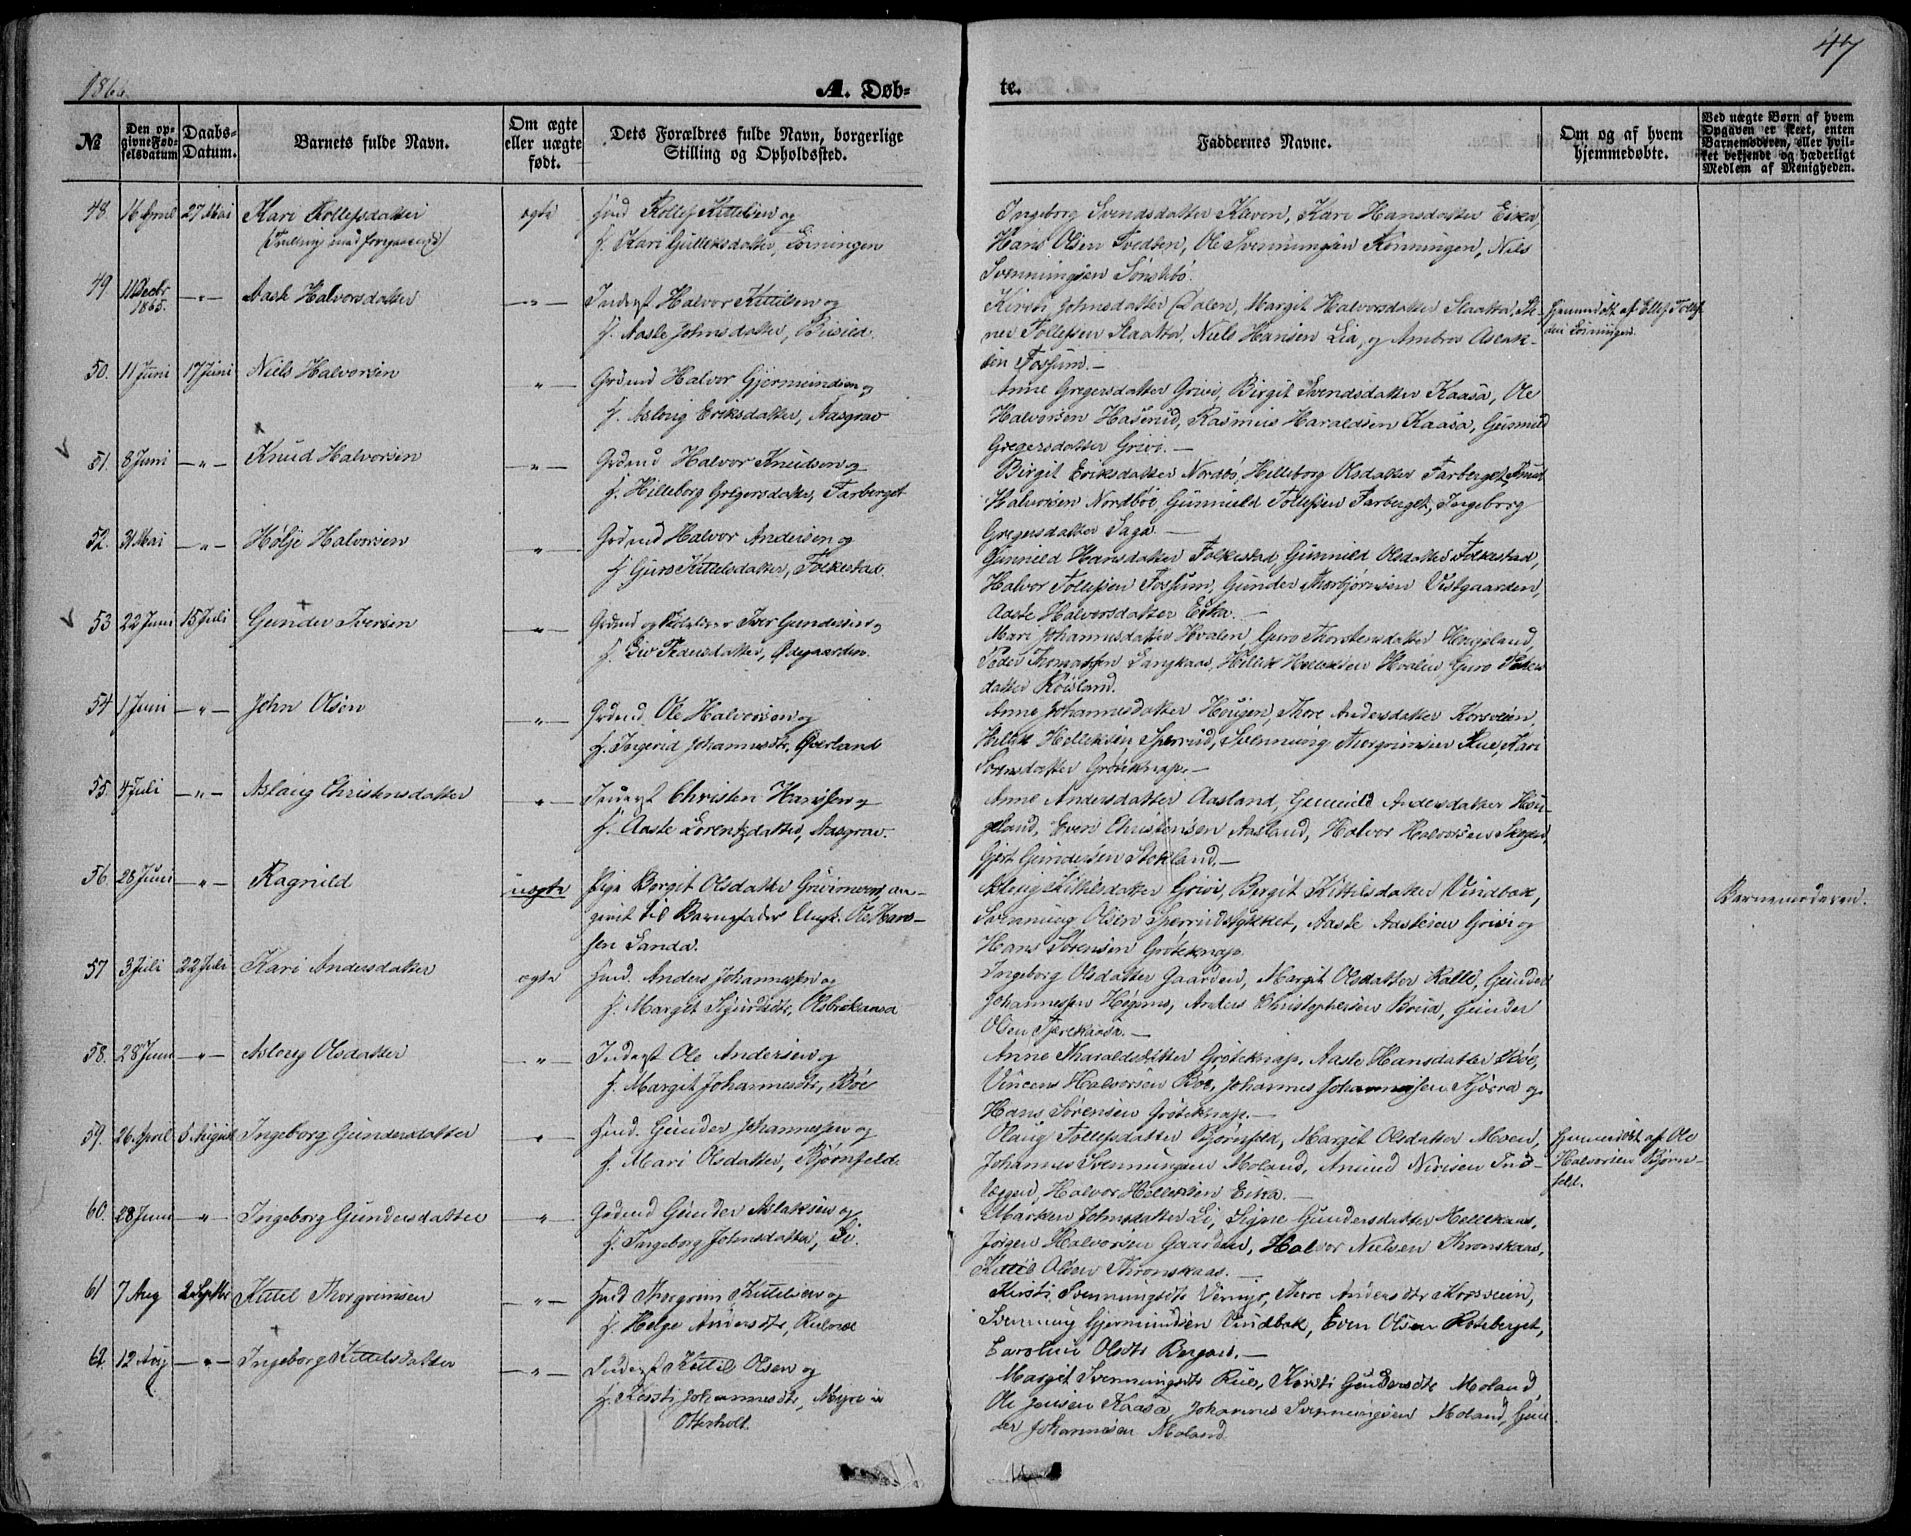 1866.
A. Døb-
te.
47
№
Den op-
givne Fød-
selsdatum
Daabs-
Datum.
Barnets fulde Navn.
Om ægte
eller uægte
født.
Dets Forældres fulde Navn, borgerlige
Stilling og Opholdssted.
Faddernes Navne.
Om og af hvem
hjemmedøbte.
Ved uægte Børn af hvem
Opgaven er skeet, enten
Barnemoderen, eller hvil-
ket bekjendt og hæderligt
Medlem af Menigheden.
48. 16 April 27 Mai Kari Tollefsdatter ægte Hmd Tollef Kittelsen og
(Tvilling med foregaaende) f. Kari Gulleksdatter,
Ingeborg Svendsdatter Kaven, Kari Hansdatter Eika,
Hans Olsen Tvedten, Ole Svenningsen Rønningen, Niels
Svenningsen Sønstebø.
49 11 Decbr 1865. —"— Aaste Halvorsdatter —"— Inderst Halvor Kittilsen og
f. Aaste Johnsdatter,
Kirsti Johnsdatter Dalen, Margit Halvorsdatter Skaatta,
ner Tollefsen Skaatta, Niels Hansen Lia, og Ambros Aslak-
sen Fossum.—
Hjemmedøbt af Ellef Tollef-
sen
50. 11 Juni 17 Juni Niels Halvorsen —"— Grdmd Halvor Gjermundsen og
f. Asloug Eriksdatter, Aasgrav
Anne Gregersdatter Grivi, Birgit Svendsdatter Kaasa, Ole
Halvorsen Haserud, Rasmus Haraldsen Kaasa, Gunnild
Gregersdatter Grivi.—
51. 8 Juni —"— Knud Halvorsen —"— Grdmd Halvor Knudsen og
f. Hilleborg Gregersdatter, Farberget
Birgit Eriksdatter Nordbø, Hilleborg Olsdatter Farberget, Knud
Halvorsen Nordbøe, Gunnuld Tollefsen Farberget, Ingeborg
Gregersdatter Saga.—
52. 31 Mai —"— Hølje Halvorsen —"— Grdmd Halvor Andersen og
f. Guro Kittelsdatter, Folkestad.
Gunnild Hansdatter Folkestad, Gunnild Olsdatter Folkestad,
Halvor Tollefsen Fossum, Gunder Torbjørnsen Vestgaarden,
Aaste Halvorsdatter Eika.—
53 22 Juni 15 Juli Gunder Iversen —"— Grdmd og Iver Gundersen og
f. Liv Pedersdatter, Ødegaarden.
Mari Johannesdatter Hvalen, Guro Thorstensdatter
Peder Thomassen Langkaas, Hellik Helleksen Hvalen, Guro Peders-
datter Roisland.
54 1 Juni —"— John Olsen —"— Grdmd. Ole Halvorsen og
f. Ingerid Johannesdtr, Øverland
Anne Johannesdatter Hougen, Thore Andersdatter Korsveien,
Hellek Helleksen Sperrud, Svenning Thorgrimsen Rue, Kari
Sorensdatter Grøteknap.—
55. 4 Juli —"— Aslaug Christensdatter —"— Inderst Christen Hanssen og
f. Aaste Lorentzdatter, Aasgrav.
Anne Andersdatter Aasland, Gunnild Andersdatter Hou-
geland, Even Christensen Aasland, Halvor Halvorsen
Gjert Gundersen Stokland.—
56. 28 Juni —"— Ragnild uægte Pige Borgit Olsdatter an-
givet til Barnefader Ungk. Ole Hans-
sen Sanda.
Aslaug Kittilsdatter Grivi, Birgit Kittilsdatter Vindbak,
Svenning Olsen Sperrudstykket, Aaste Aaslesen Grivi og
Hans Sørensen Grøteknap.
Barnemoderen.
57 3 Juli 22 Juli Kari Andersdatter ægte Hmd. Anders Johannessen og
f. Margit Sigurdsdtr, Olsbrekaasa
Ingeborg Olsdatter Gaarden, Margit Olsdatter Kalle, Gunder
Johannessen Anders Christophersen Boua, Gunder
Olsen —
58. 28 Juni —"— Asloug Olsdatter —"— Inderst Ole Andersen og
f. Margit Johannesdtr, Bøe
Anne Tharaldsdatter Grøteknap, Aaste Hansdatter
Vincens Halvorsen Boe, Johannes Johannessen og
Hans Sørensen Grøteknap.—
59. 26 April 5 August Ingeborg Gundersdatter —"— Hmd. Gunder Johannessen og
f. Mari Olsdatter, Bjørnfeld.
Olaug Tollefsdatter Bjørnfeld, Margit Olsdatter Moen,
Johannes Svenningsen Moland, Amund Nirisen Ind-
læggen, Halvor Helleksen Eika.—
Hjemmedøbt af Ole
Halvorsen Bjørn-
feld.
60. 28 Juni —"— Ingeborg Gundersdatter —"— Grdmd Gunder Aslaksen og
f. Ingeborg Johnsdatter, Li.
Marken Johnsdatter Li, Signe Gundersdatter Hellekaas,
Jørgen Halvorsen Gaarden, Halvor Nielsen Thronskaas,
Kittil Olsen Thronskaas.—
61 7 Aug 2 Septbr Kittel Thorgrimsen —"— Hmd Thorgrim Kittelsen og
f. Helge Andersdtr,
Kirsti Svenningsdtr Thore Andersdtr Korsveien,
Svenning Gjermundsen Vindbak, Even Olsen Roteberget,
Caroline Olsdtr —
62. 12 Aug —"— Ingeborg Kittelsdatter —"— Inderst Kittil Olsen og
f. Kirsti Johannesdtr, Myra u
Otterholt.
Margit Svenningsdtr Rue, Kirsti Gundersdtr Moland,
Ole Jensen Kaasa, Johannes Svenningsen Moland, Gun-
der Johannesen Moland.